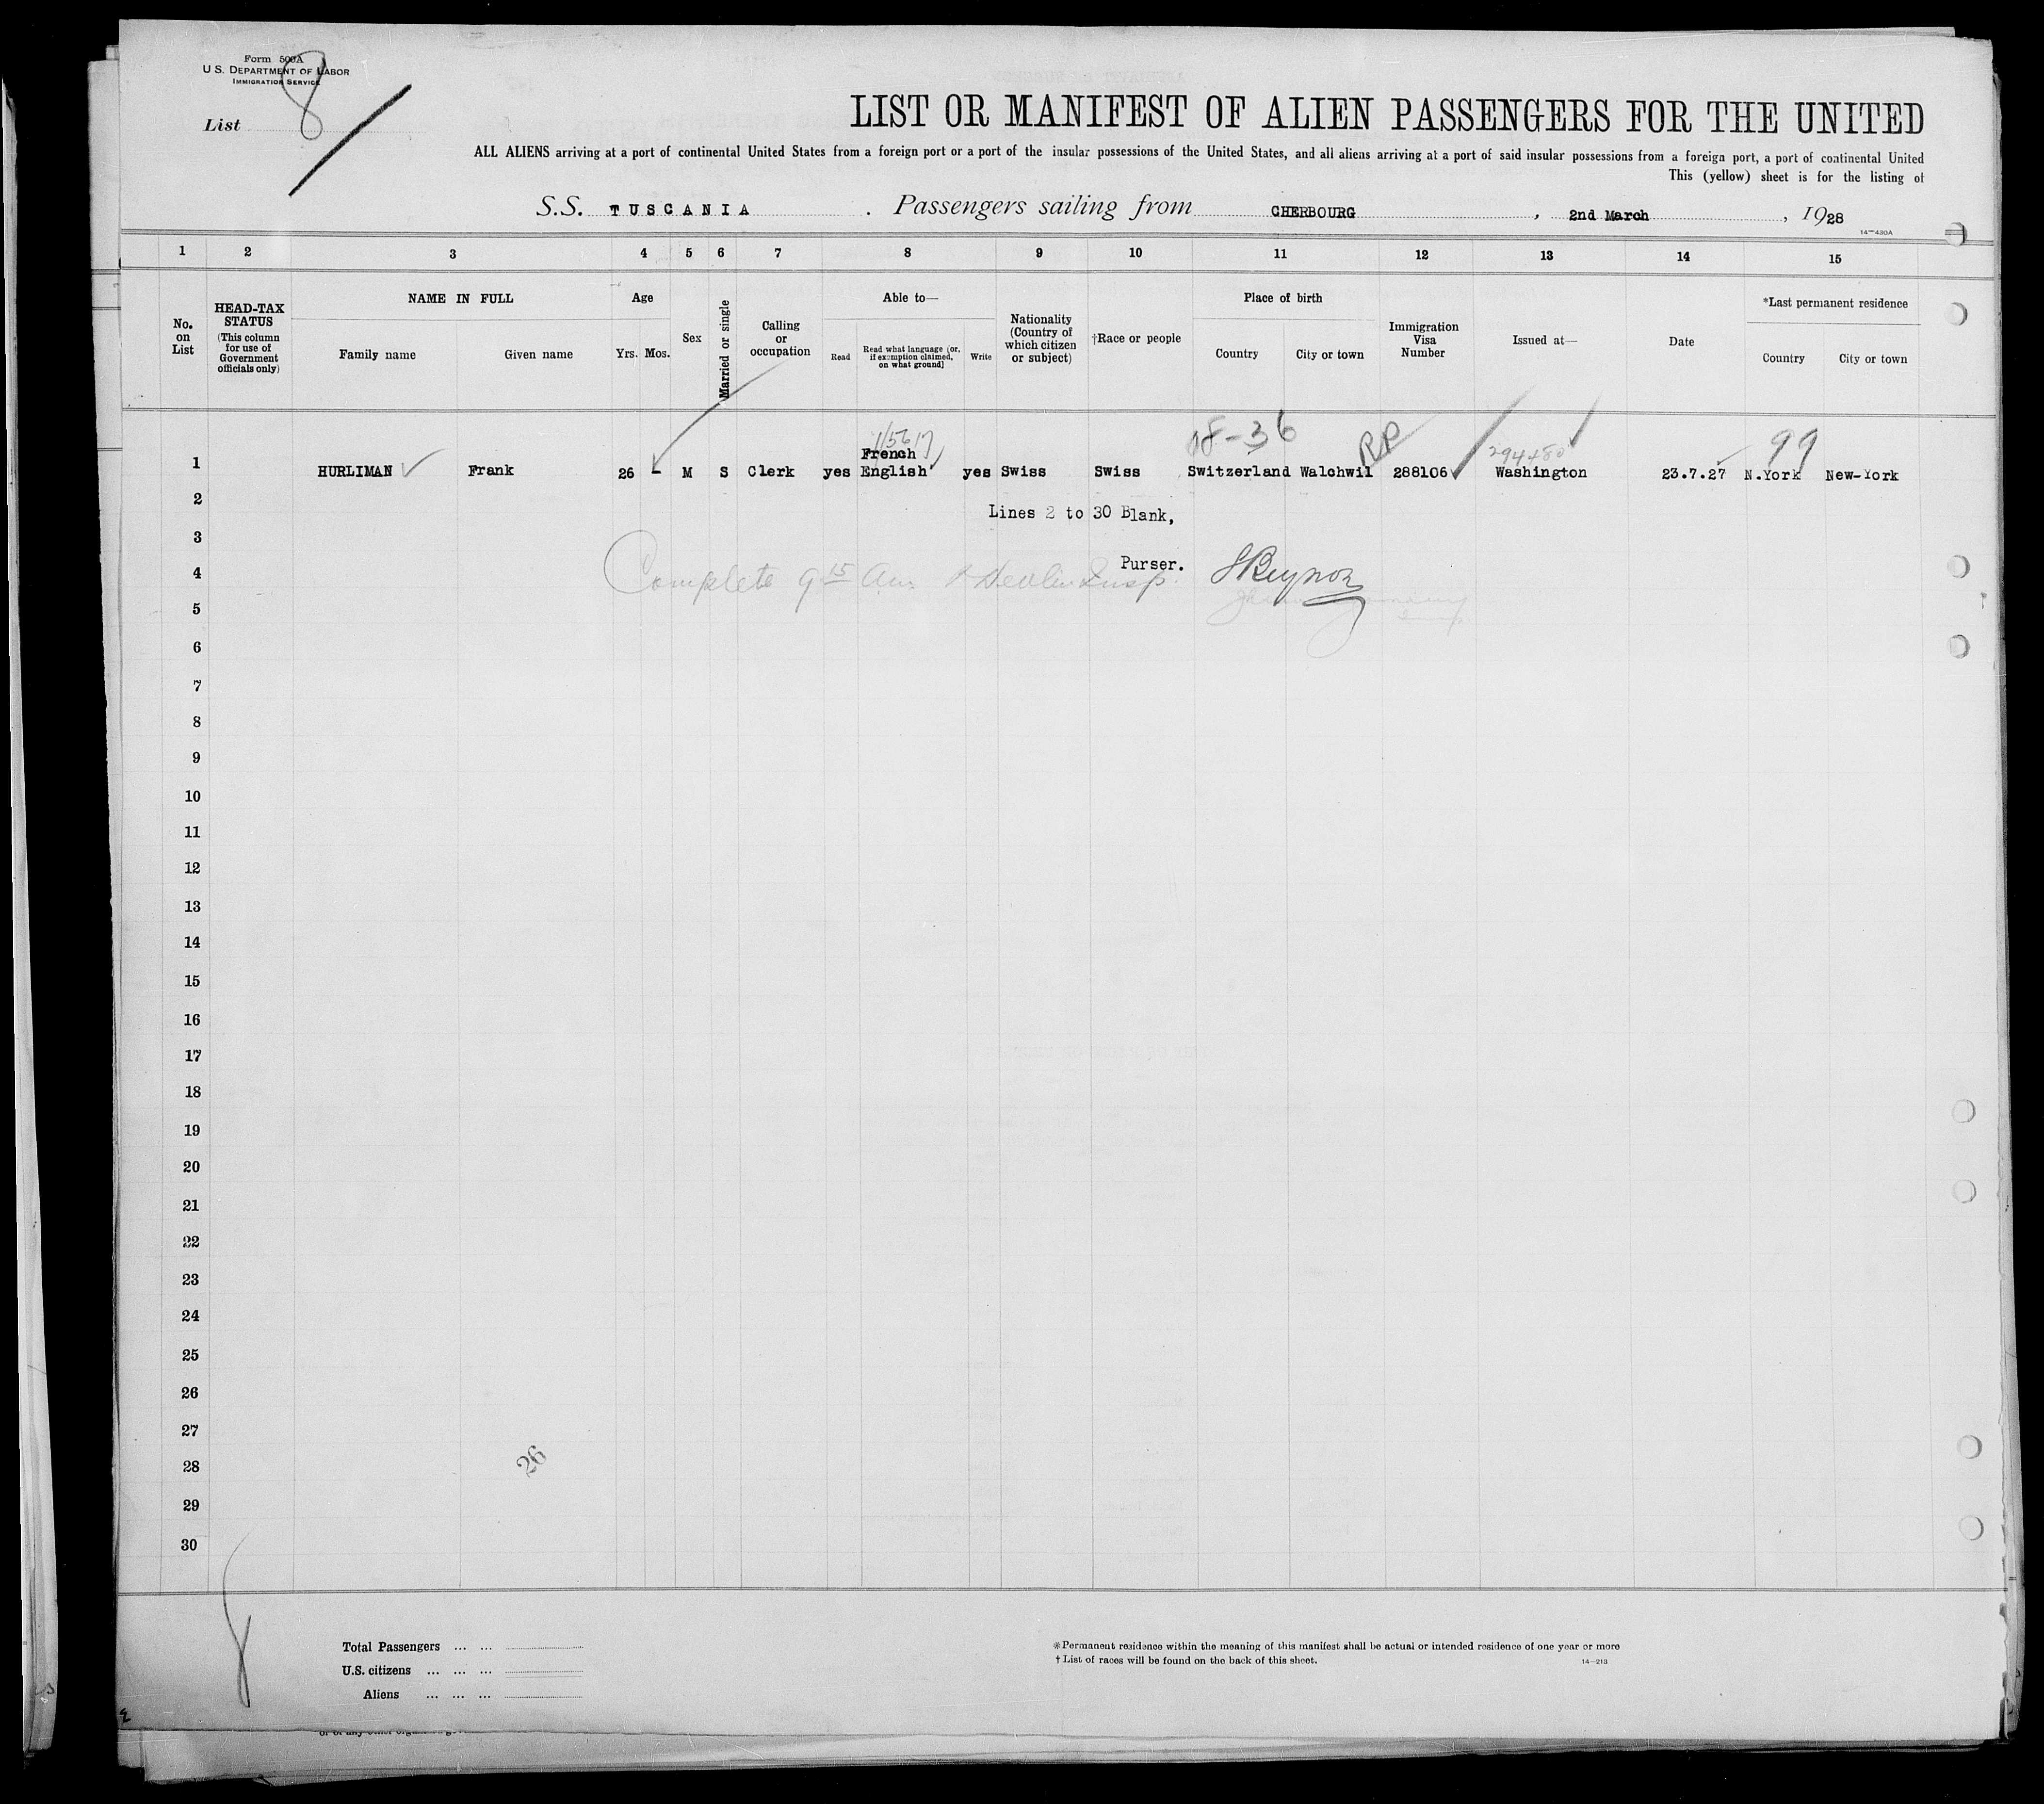 Form 500A
U.S. DEPARTMENT OF LABOR
IMMIGRATION SERVICE
List 8
LIST OR MANIFEST OF ALIEN PASSENGERS FOR THE UNITED
ALL ALIENS arriving at a port of continental United States from a foreign port or a port of the insular possessions of the United States, and all aliens arriving at a port of said insular possessions from a foreign port, a port of continental United
This (yellow) sheet is for the listing of
S.S. TUSCANIA . Passengers sailing from CHERBOURG , 2nd March , 1928
14—430A
1 2 3 4 5 6 7 8 9 10 11 12 13 14 15
No. on List
HEAD-TAX STATUS
(This column for use of Government officials only)
NAME IN FULL
Family name Given name
Age
Yrs. Mos.
Sex
Married or single
Calling or occupation
Able to—
Read
Read what language [or, if exemption claimed, on what ground]
Write
Nationality (Country of which citizen or subject)
†Race or people
Place of birth
Country City or town
Immigration Visa Number
Issued at—
Date
*Last permanent residence
Country City or town
08-36 RP 99
French
1 HURLIMAN Frank 26 - M S Clerk yes English yes Swiss Swiss Switzerland Walchwil 288106 Washington 23.7.27 N.York New-York
2
Lines 2 to 30 Blank,
3
Purser.
4 Complete 9 15 Am Devlin Insp.
5
6
7
8
9
10
11
12
13
14
15
16
17
18
19
20
21
22
23
24
25
26
27
26
28
29
30
Total Passengers ... ...
U.S. citizens ... ... ...
Aliens ... ... ...
*Permanent residence within the meaning of this manifest shall be actual or intended residence of one year or more
†List of races will be found on the back of this sheet.
14—213